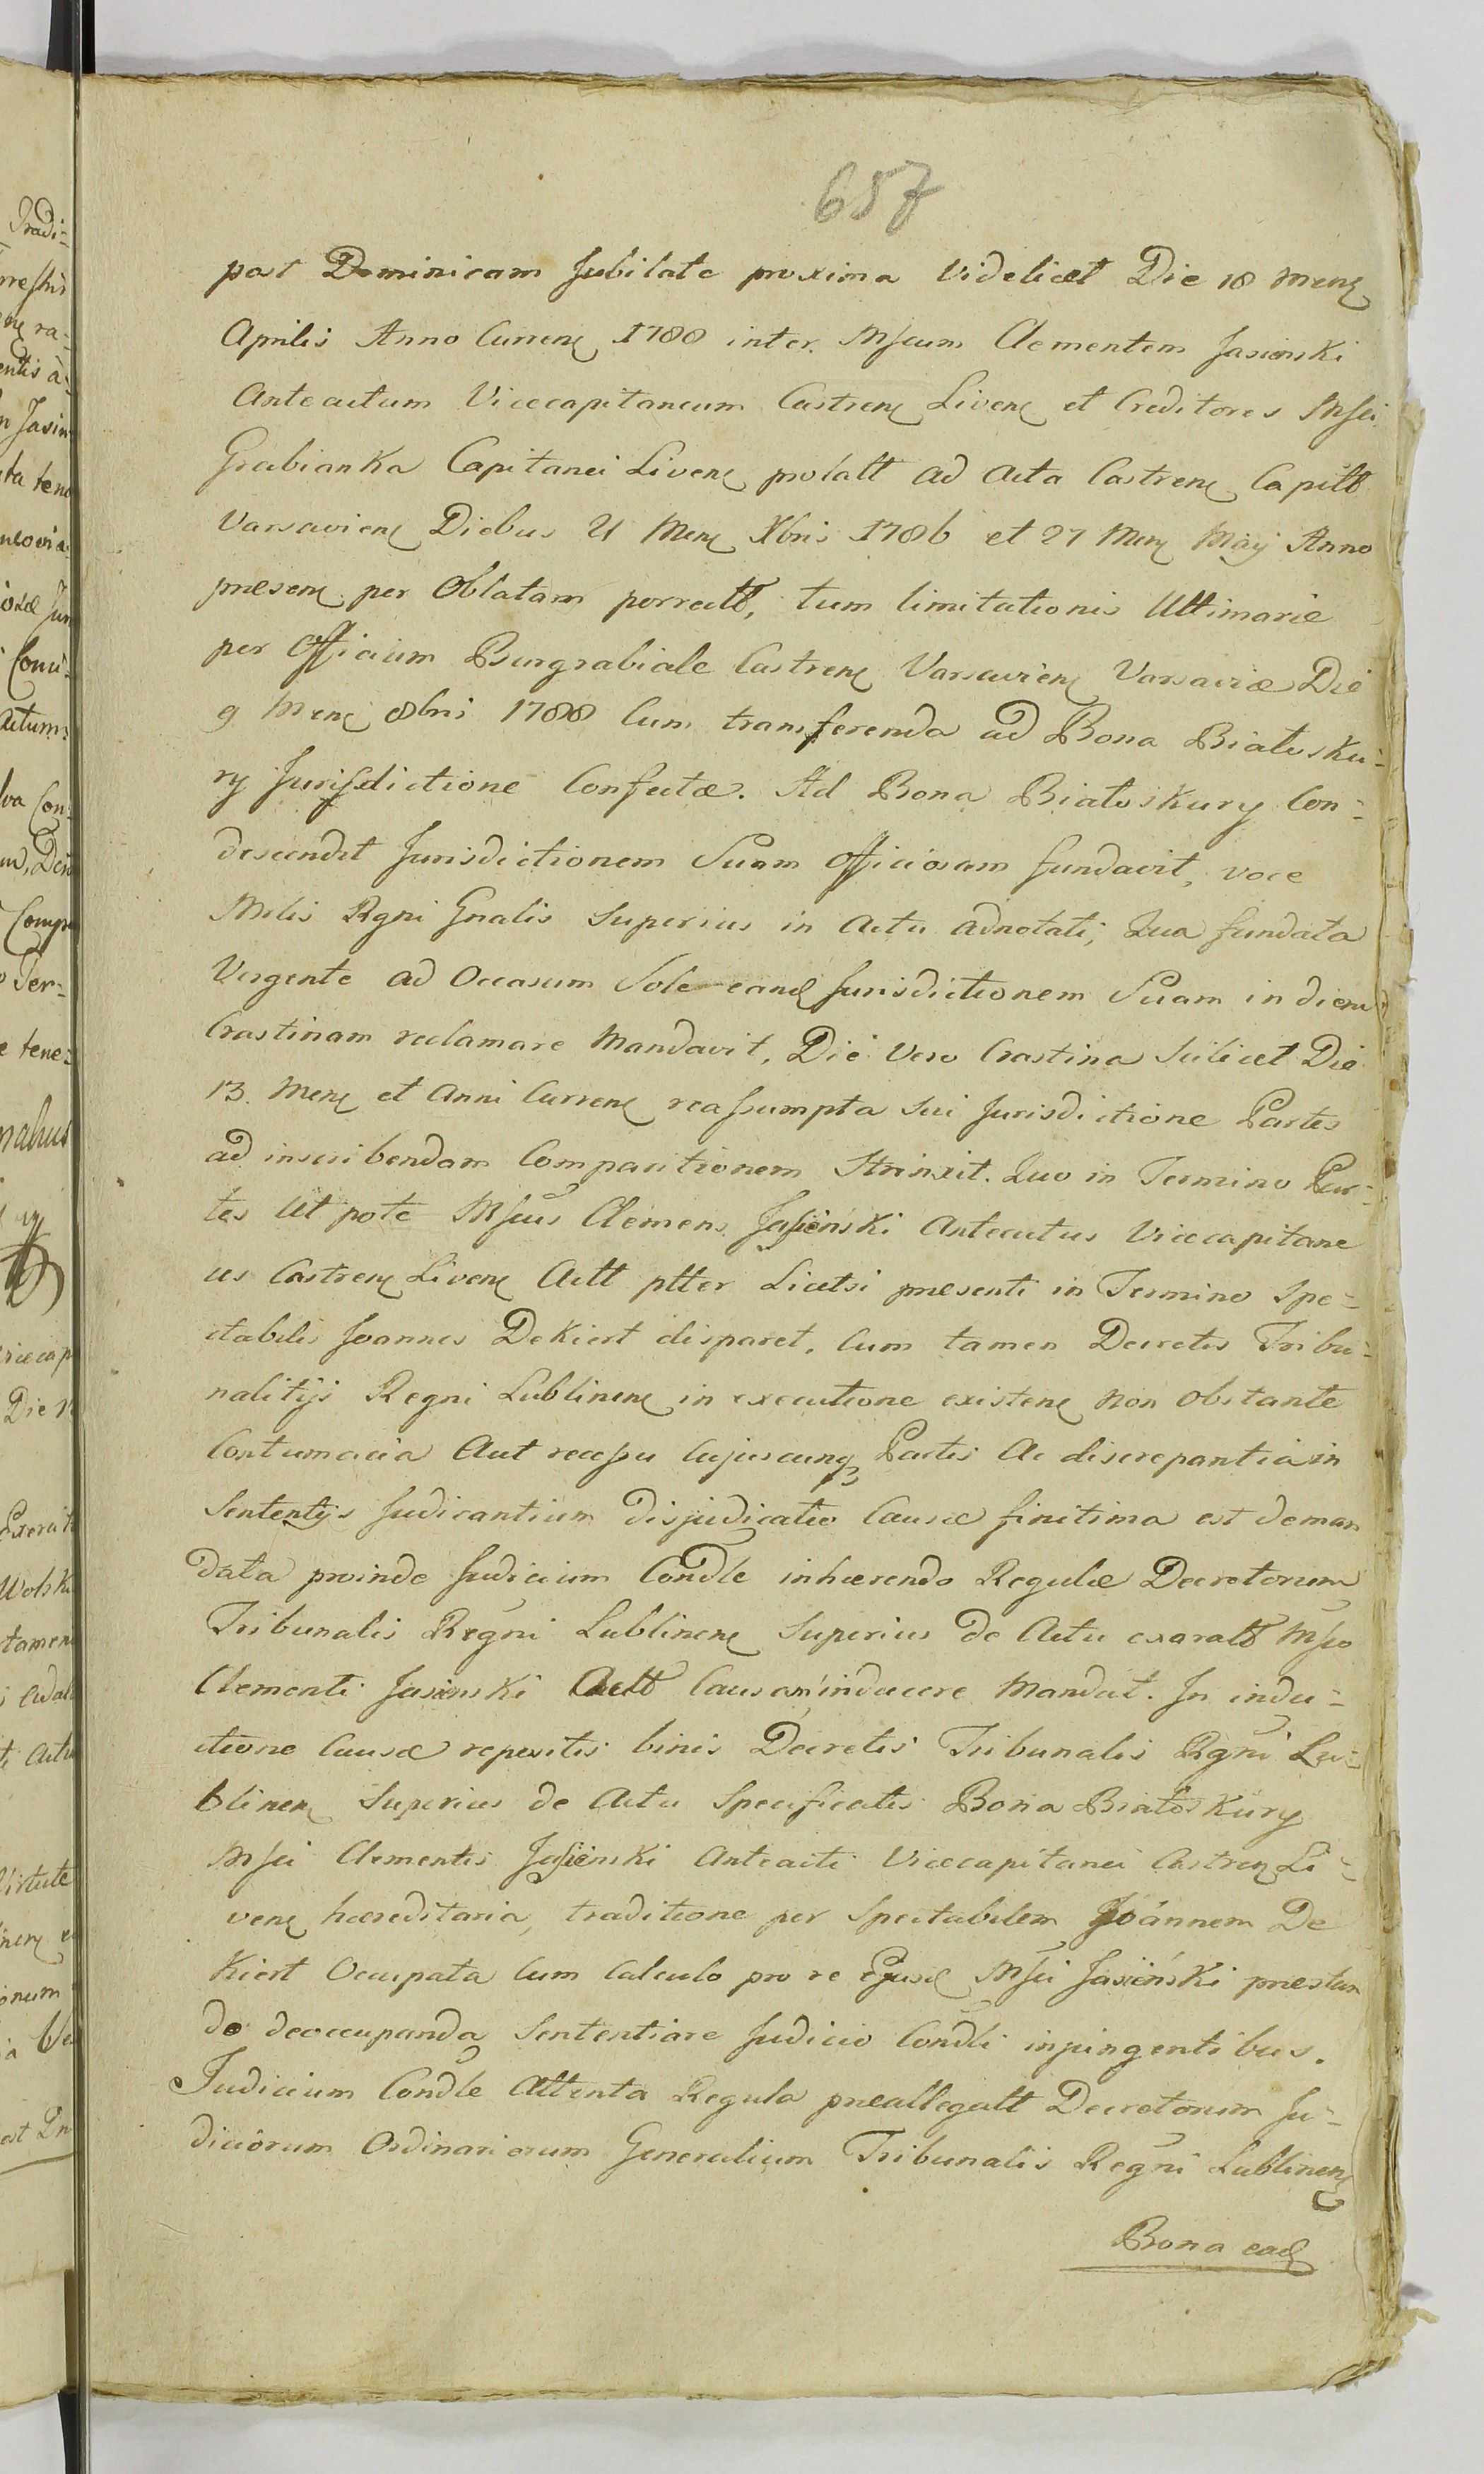 657
post Dominicam Jubilate proxima videlicet Die 18 Mens
Aprilis Anno Currens 1788 inter Mscum Clementem Jasienski
Anteactum Vicecapitaneum Castrens Livens et Creditores Msci
Grabianka Capitanei Livens prolatt ad Acta Castrens Capitt
Varsaviens Diebus 21 Mens Xbris 1786 et 27 Mens Maij Anno
præsens per Oblatam porrectt, tum limitationis Ultimariæ
per Officium Burgrabiale Castrens Varsaviens Varsaviæ Die
9 Mens 8bris 1788 Cum transferenda ad Bona Białos Ku-
ry Jurisdictione Confectæ. Ad Bona Białoskury Con-
descendit Jurisdictionem Suam Officiosam fundavit, voce
Mrlis Rgni Gnalis Superius in Actu adnotati, Qua fundata
Vergente ad Occasum Sole eand Jurisdictionem Suam in diem
Crastinam reclamare Mandavit, Die vero Crastina Scilicet Die
13. Mens et Anni Currens reassumpta sui Jurisdictione Partes
ad inscribendam Comparitionem Strinxit. Quo in Termino Par-
tes Ut pote Mscus Clemens Jasieński Anteactus Vicecapitane
us Castrens Livens Actt ptter Licetsi præsenti in Termino Spe-
ctabilis Joannes DeKiert disparet, Cum tamen Decretis Tribu-
nalitijs Regni Lublinens in executione existens Non Obstante
Contumacia Aut recessu Cujuscunq Partis Ac discrepantia in
Sententijs Judicantium disjudicatio Causæ finitima est deman
data proinde Judicium Condle inhærendo Regulæ Decretorum
Tribunalis Regni Lublinens Superius de Actu exaratt Msco
Clementi Jasienski Actt Causam inducere Mandat. In indu-
ctione Causæ repositis binis Decretis Tribunalis Rgni Lu-
blinens Superius de Actu Specificatis Bona Białos Kury
Msci Clementis Jasieński Anteacti Vicecapitanei Castrens Li-
vens hæreditaria, traditione per Spectabilem Joannem De
Kiert Occupata Cum Calculo pro re Ejusd Msci Jasieński præstan
do deoccupanda Sententiare Judicio Condli inpingentibus.
Judicium Condle Attenta Regula præallegatt Decretorum Ju-
diciorum Ordinariorum Generalium Tribunalis Regni Lublinens
Bona ead